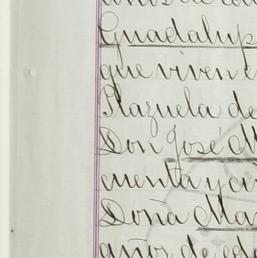 años de ed
Guadalup
que viven e
Plazuela de
Don José M
cuenta y ci
Doña Ma
años de ed